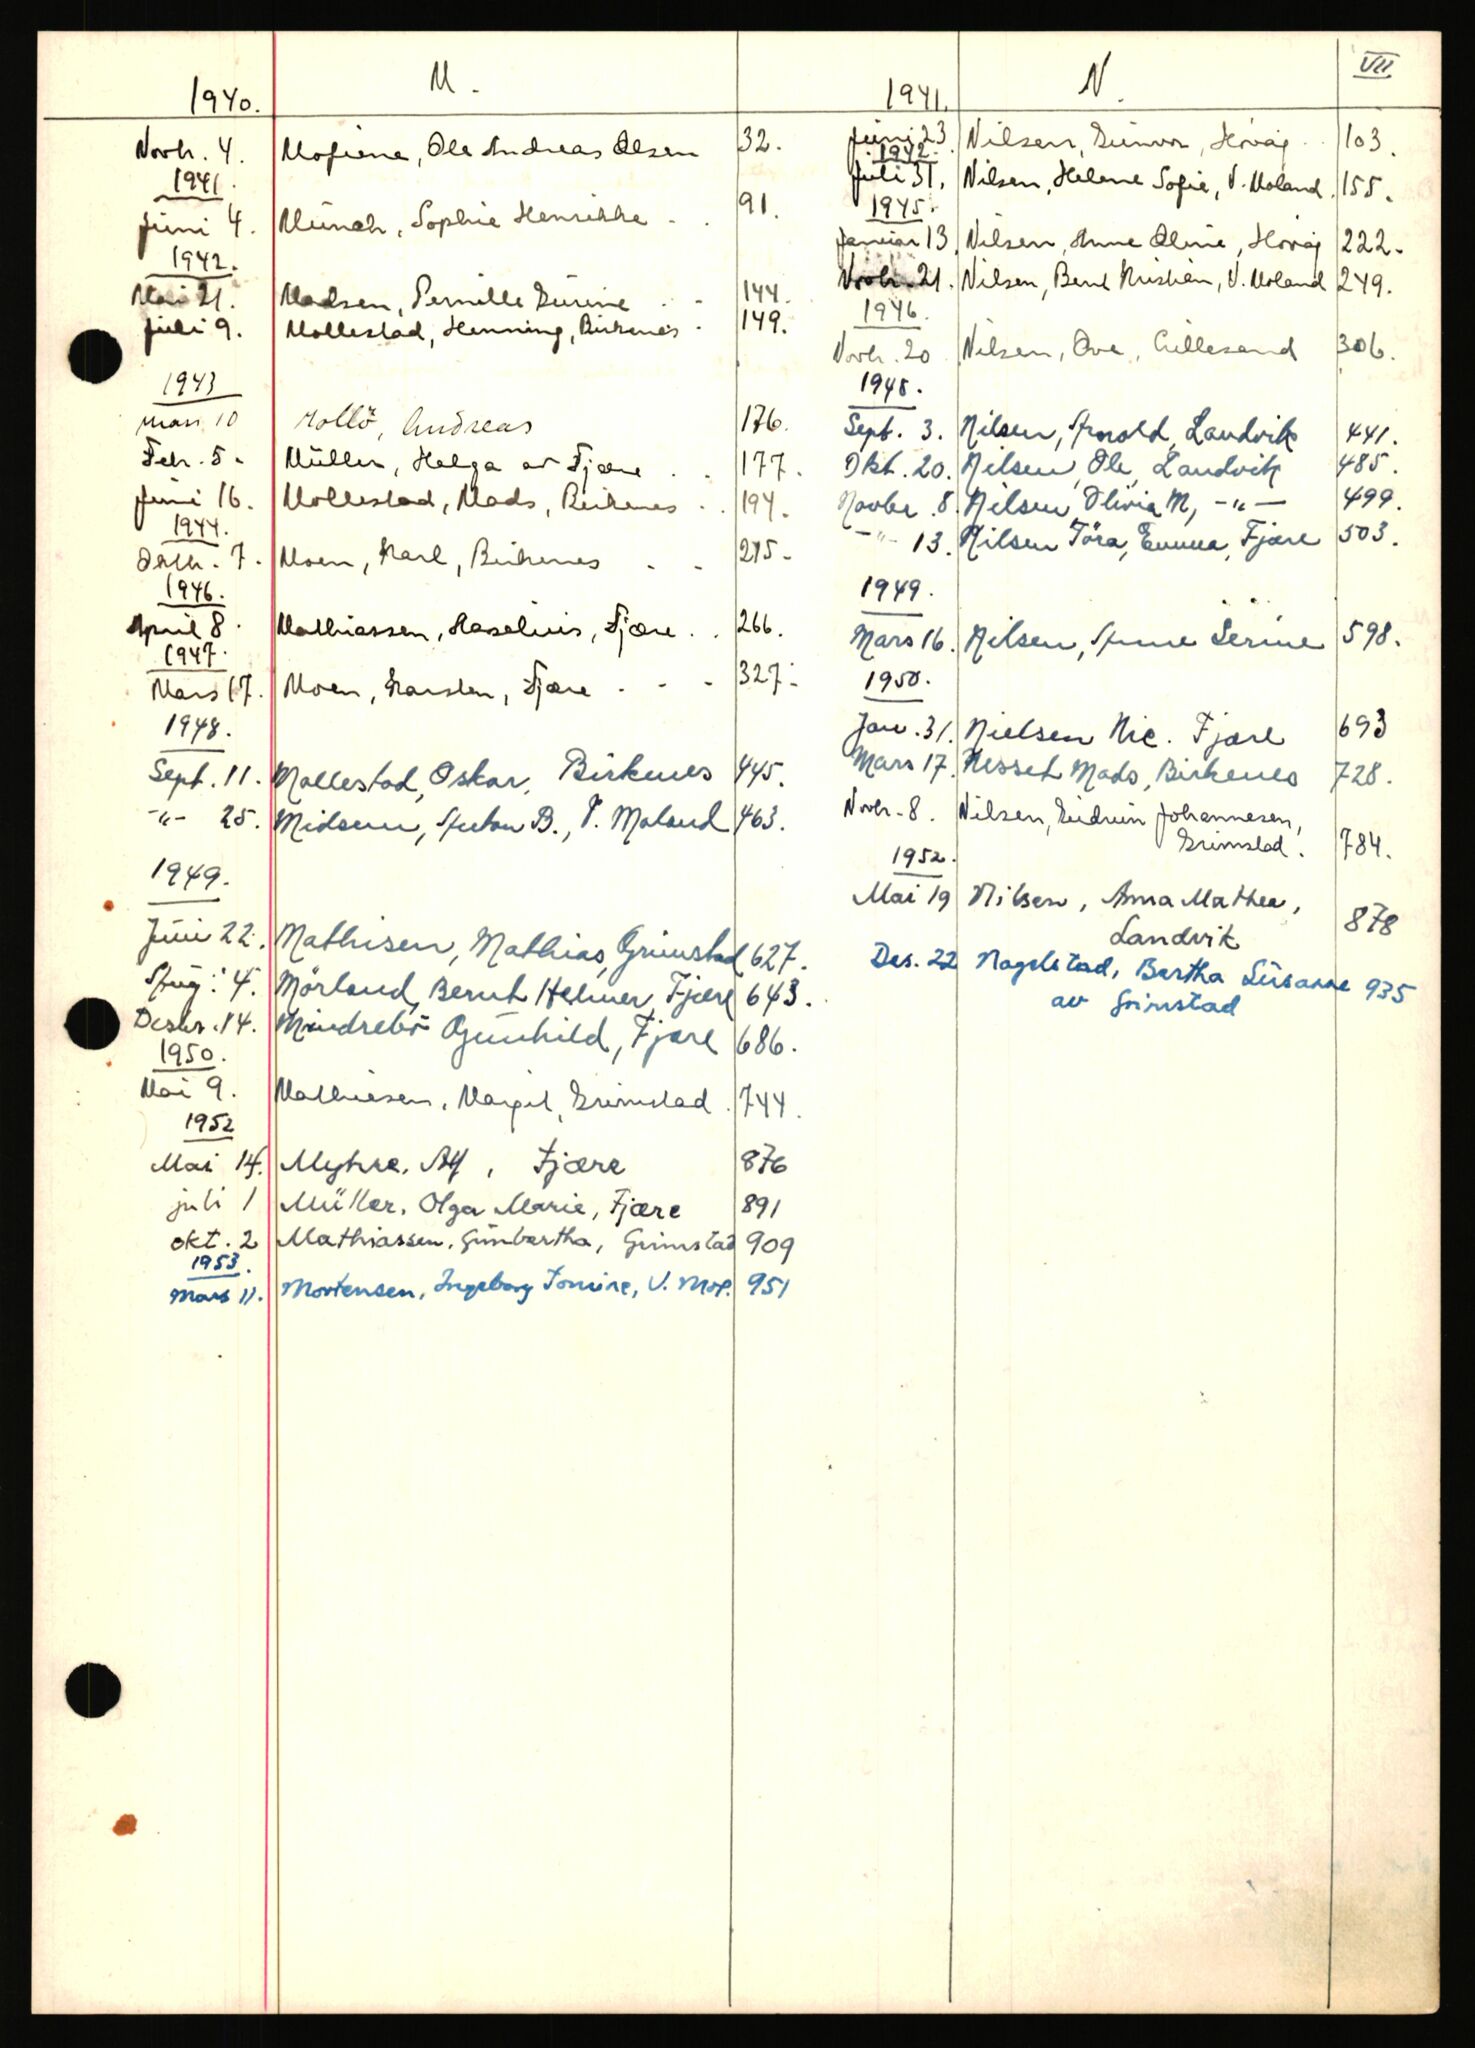 VII
1940. M.
Novbr. 4. Mofiene, Ole Andreas Olsen 32.
1941.
Juni 4. Münch, Sophie Henrikke . . 91.
1942.
Mai 21. Madsen, Pernille Gurine . . 144.
Juli 9. Mollestad, Henning, Birkenes . 149.
1943
mars 10 Mollö, Andreas 176.
Febr. 5. Müller, Helga av Fjære . . 177.
Juni 16. Mollestad, Mads, Birkenes . . 194.
1944.
Oktbr. 7. Moen, Karl, Birkenes . . 215.
1946.
April 8. Mathiassen, Haselius, Fjære . . 266.
1947.
Mars 17. Moen, Karsten, Fjære . . . 327.
1948.
Sept. 11. Mollestad, Oskar, Birkenes 445.
-"- 25. Midsem, Anton B., V. Moland 463.
1949.
Juni 22. Mathisen, Mathias, Grimstad 627.
Aug. 4. Mörland, Bernt Helmer, Fjære 643.
Desbr. 14. Mindrebö Gunhild, Fjære 686.
1950.
Mai 9. Mathiesen, Margit, Grimstad . 744.
1952
Mai 14. Myhre, Alf, Fjære 876
juli 1 Müller, Olga Marie, Fjære 891
okt. 2 Mathiassen, Gunbertha, Grimstad 909
1953.
Mars 11. Mortensen, Ingeborg Tomine, V. Mol. 951
1941. N.
Juni 23. Nilsen, Gunvor, Høvåg . . 103.
1942.
Juli 31. Nilsen, Helene Sofie, V. Moland. 155.
1945.
Januar 13. Nilsen, Anne Oline, Høvåg 222.
Novbr. 21. Nilsen, Bernt Kristian, V. Moland 249.
1946.
Novbr. 20 Nilsen, Ove, Lillesand 306.
1948.
Sept. 3. Nilsen, Arnold, Landvik 441.
Okt. 20. Nilsen, Ole, Landvik 485.
Novbr. 8. Nilsen, Olivia M, -"- 499.
-"- 13. Nilsen Tora, Emma, Fjære 503.
1949.
Mars 16. Nilsen, Anne Serine 598.
1950.
Jan. 31. Nielsen Nic. Fjære 693
Mars 17. Nesset Mads, Birkenes 728.
Novbr. 8. Nilsen, Gudrun Johannesen,
Grimstad. 784.
1952.
Mai 19 Nilsen, Anna Mathea,
Landvik 878
Des. 22 Nagelstad, Bertha Susanne 935
av Grimstad